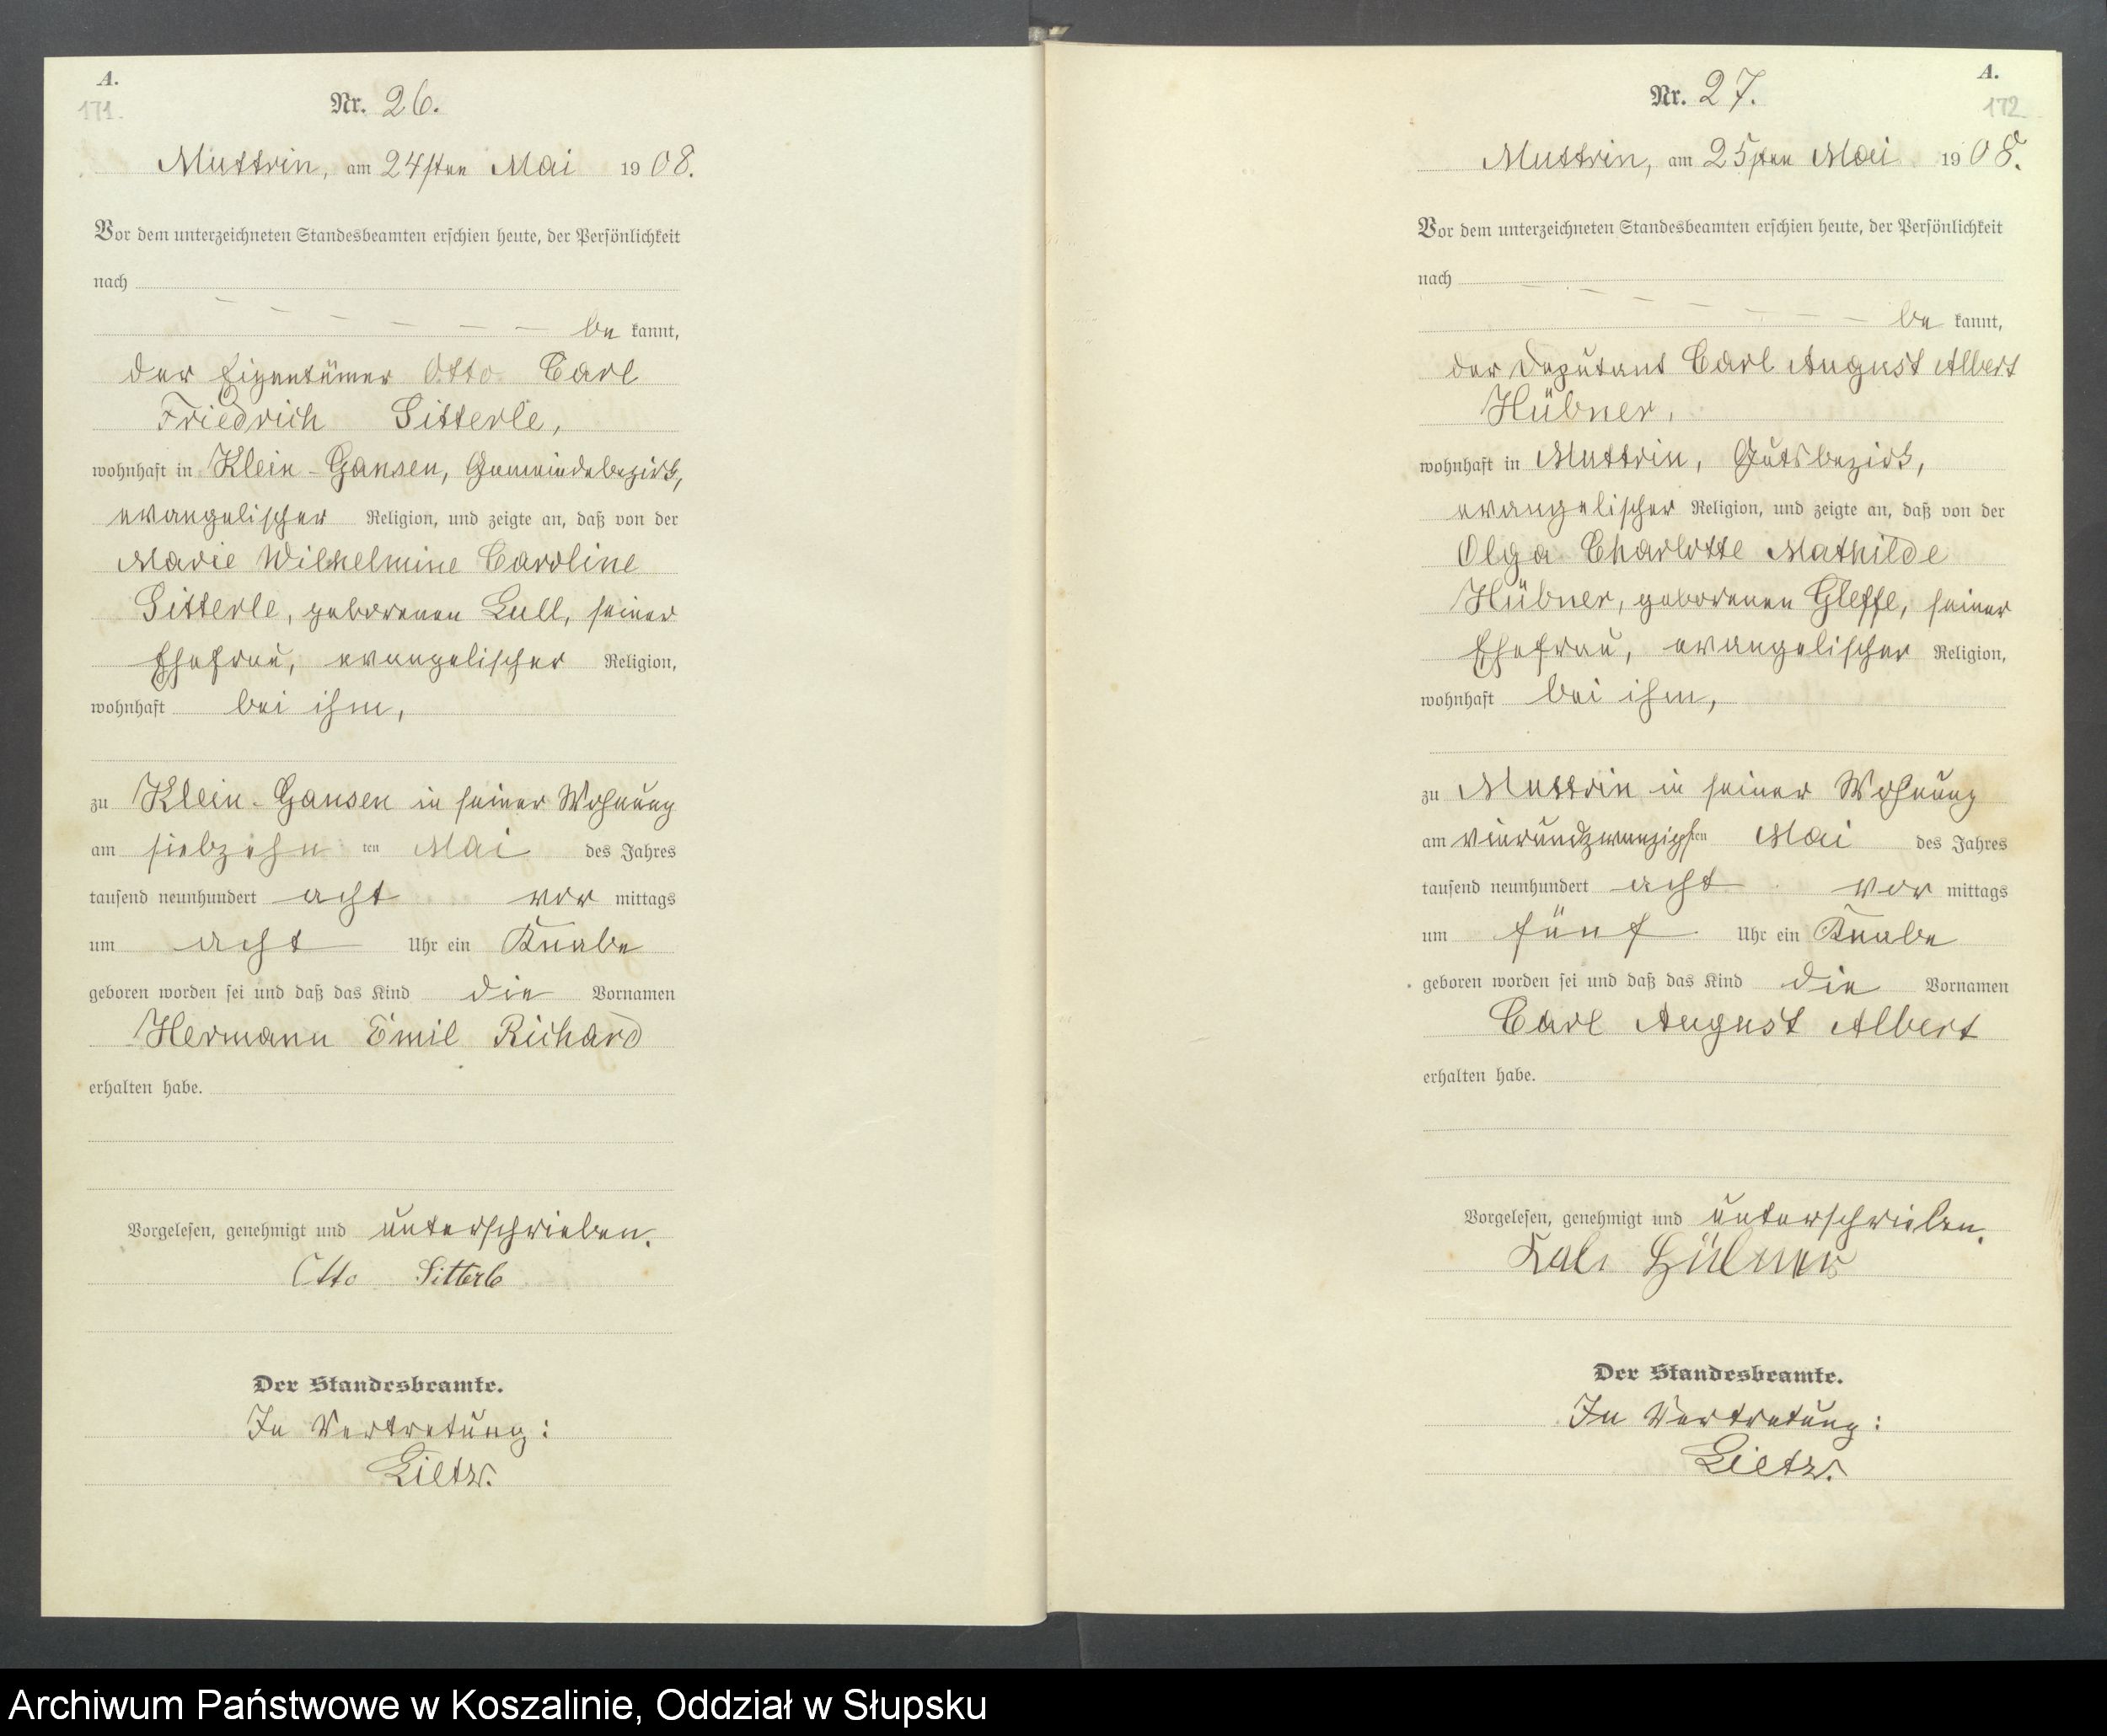 A.
171.
Nr. 26.
Muttrin, am 24sten Mai 1908.
Vor dem unterzeichneten Standesbeamten erschien heute, der Persönlichkeit
nach
be kannt,
der Eigentümer Otto Carl
Friedrich Sitterle,
wohnhaft in Klein-Gansen, Gemeindebezirk,
evangelischer Religion, und zeigte an, daß von der
Marie Wilhelmine Caroline
Sitterle, geborenen Lull, seiner
Ehefrau, evangelischer Religion,
wohnhaft bei ihm,
zu Klein-Gansen in seiner Wohnung
am siebzehn ten Mai des Jahres
tausend neunhundert acht vor mittags
um acht Uhr ein Knabe
geboren worden sei und daß das Kind die Vornamen
Hermann Emil Richard
erhalten habe.
Vorgelesen, genehmigt und unterschrieben.
Otto Sitterle
Der Standesbeamte.
In Vertretung:
Lietz.
A.
172
Nr. 27.
Muttrin, am 25sten Mai 1908.
Vor dem unterzeichneten Standesbeamten erschien heute, der Persönlichkeit
nach
be kannt,
der Deputant Carl August Albert
Hübner,
wohnhaft in Muttrin, Gutsbezirk,
evangelischer Religion, und zeigte an, daß von der
Olga Charlotte Mathilde
Hübner, geborenen Gleffe, seiner
Ehefrau, evangelischer Religion,
wohnhaft bei ihm,
zu Muttrin in seiner Wohnung
am vierundzwanzigsten Mai des Jahres
tausend neunhundert acht vor mittags
um fünf Uhr ein Knabe
geboren worden sei und daß das Kind die Vornamen
Carl August Albert
erhalten habe.
Vorgelesen, genehmigt und unterschrieben.
Hübner
Der Standesbeamte.
In Vertretung:
Lietz.
Archiwum Państwowe w Koszalinie, Oddział w Słupsku